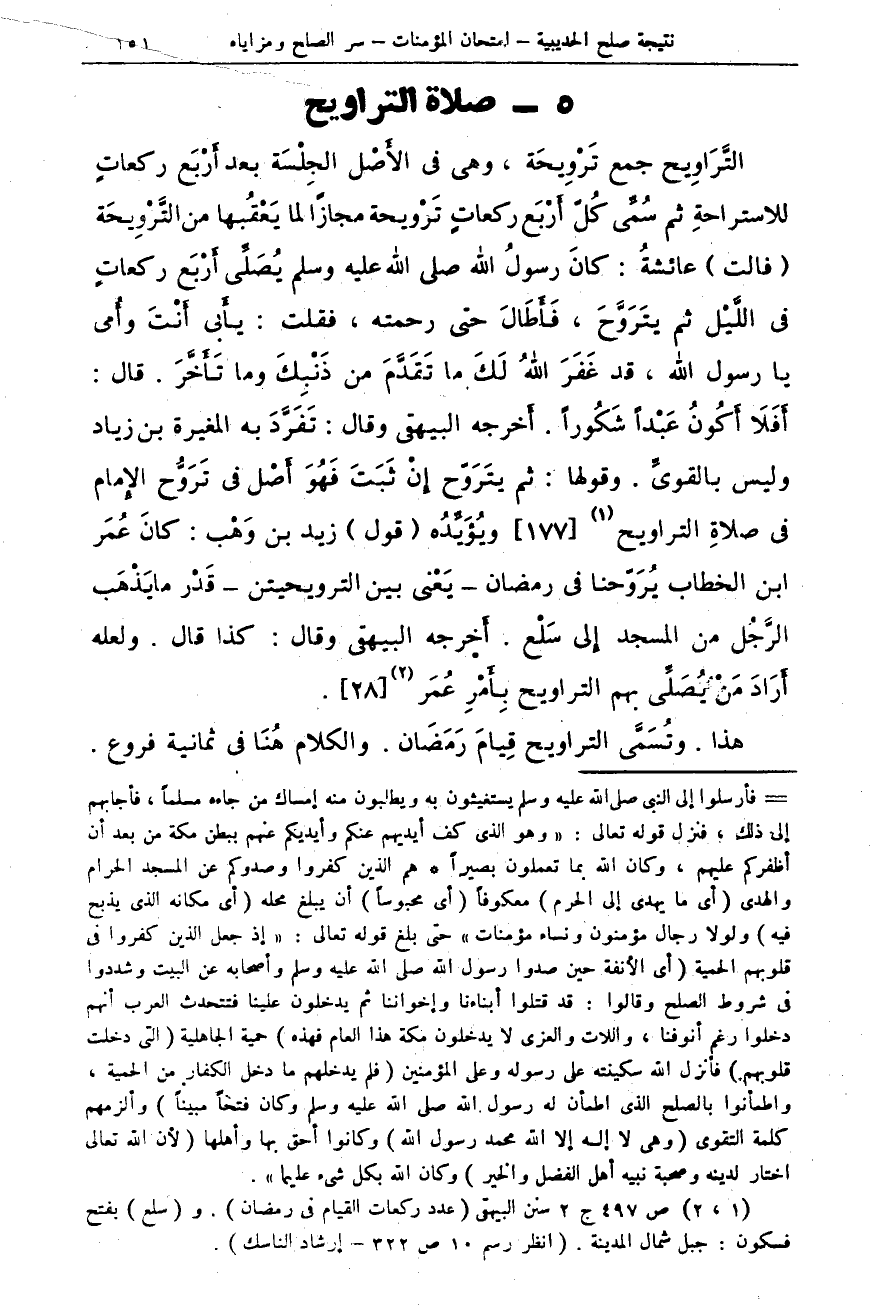 نتيجة صلح الحديبية – امتحان المؤمنات – سر الصلح ومزاياه ١٥١
٥ – صلاة التراويح
التَّرَاوِيح جمع تَرْوِيحَة ، وهى فى الأَصْل الجِلْسَة بعد أَرْبَع ركعاتٍ
للاستراحةِ ثم سُمِّى كُلّ أَرْبَع ركعاتٍ تَرْويحة مجازًا لما يَعْقُبها من التَّرْوِيحَة
( قالت ) عائشةُ : كانَ رسولُ الله صلى الله عليه وسلم يُصَلِّى أَرْبَع ركعاتٍ
فى اللَّيْل ثم يتَرَوَّحَ ، فَأَطَالَ حتى رحمته ، فقلت : بأَبى أَنْتَ وأُمى
يا رسول الله ، قد غَفَرَ اللهُ لَكَ ما تَقدَّمَ من ذَنْبِكَ وما تَأَخَّرَ . قال :
أَفَلَا أَكُونُ عَبْداً شَكُوراً . أخرجه البيهقى وقال : تَفَرَّدَ به المغيرة بن زياد
وليس بالقوىِّ . وقولها : ثم يتَرَوّح إنْ ثَبَتَ فَهُوَ أَصْل فى تَرَوُّح الإمام
فى صلاةِ التراويح (١) [١٧٧] ويُؤَيِّدُه ( قول ) زيد بن وَهْب : كانَ عُمَر
ابن الخطاب يُرَوّحنا فى رمضان – يَعْنى بين الترويحيتن – قَدْر مايَذْهَب
الرَّجُل من المسجد إلى سَلْع . أخرجه البيهقى وقال : كذا قال . ولعله
أَرَادَ مَنْ يُصَلِّى بهم التراويح بأَمْرِ عُمَر (٢) [٢٨] .
هذا . وتُسَمَّى التراويح قِيامَ رَمَضَان . والكلام هُنَا فى ثمانية فروع .
= فأرسلوا إلى النبي صلى الله عليه وسلم يستغيثون به ويطالبون منه إمساك من جاءه مسلماً ، فأجابهم
إلى ذلك ، فنزل قوله تعالى : « وهو الذى كف أيديهم عنكم وأيديكم عنهم ببطن مكة من بعد أن
أظفركم عليهم ، وكان الله بما تعملون بصيراً * هم الذين كفروا وصدوكم عن المسجد الحرام
والهدى ( أى ما يهدى إلى الحرم ) معكوفاً ( أى محبوساً ) أن يبلغ محله ( أى مكانه الذى يذبح
فيه ) ولولا رجال مؤمنون ونساء مؤمنات » حتى بلغ قوله تعالى : « إذ جعل الذين كفروا فى
قلوبهم الحمية ( أى الأنفة حين صدوا رسول الله صلى الله عليه وسلم وأصحابه عن البيت وشددوا
فى شروط الصلح وقالوا : قد قتلوا أبناءنا وإخواننا ثم يدخلون علينا فتتحدث العرب أنهم
دخلوا رغم أنوفنا ، واللات والعزى لا يدخلون مكة هذا العام فهذه ) حمية الجاهلية ( التى دخلت
قلوبهم ) فأنزل الله سكينته على رسوله وعلى المؤمنين ( فلم يدخلهم ما دخل الكفار من الحمية ،
واطمأنوا بالصلح الذى اطمأن له رسول الله صلى الله عليه وسلم وكان فتحاً مبيناً ) وألزمهم
كلمة التقوى ( وهى لا إله إلا الله محمد رسول الله ) وكانوا أحق بها وأهلها ( لأن الله تعالى
اختار لدينه وصحبة نبيه أهل الفضل والخير ) وكان الله بكل شىء عليما » .
(١ ، ٢) ص ٤٩٧ ج ٢ سنن البيهقى ( عدد ركعات القيام فى رمضان ) . و ( سلع ) بفتح
فسكون : جبل شمال المدينة . ( انظر رسم ١٠ ص ٣٢٢ – إرشاد الناسك ) .